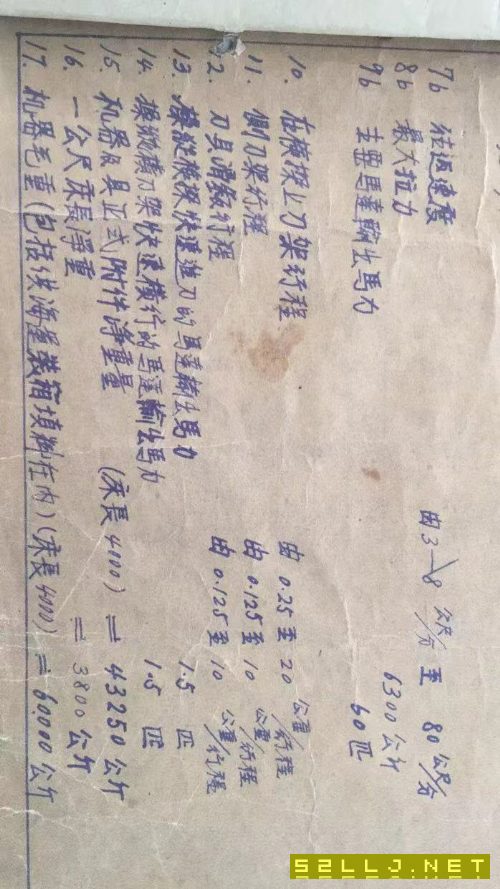 7b 往返速度 由3—8 公尺/分 至 80公尺/分
8b 最大拉力 6300公斤
9b 主要馬達輸出馬力 60匹
10. 在橫樑上刀架行程 由 0.25 至 20 公厘/行程
11. 側刀架行程 由 0.125 至 10 公厘/行程
12. 刀具滑鞍行程 由 0.125 至 10 公厘/行程
13. 操縱橫樑快速進刀的馬達輸出馬力 1.5 匹
14. 操縱橫刀架快速橫行的馬達輸出馬力 1.5 匹
15. 机器及其正式附件淨重量 (床長4000) = 43250公斤
16. 一公尺床長淨重 = 3800公斤
17. 机器毛重(包括供海運裝箱填御在内)(床長4000) = 60,000公斤
52LLJ.NET